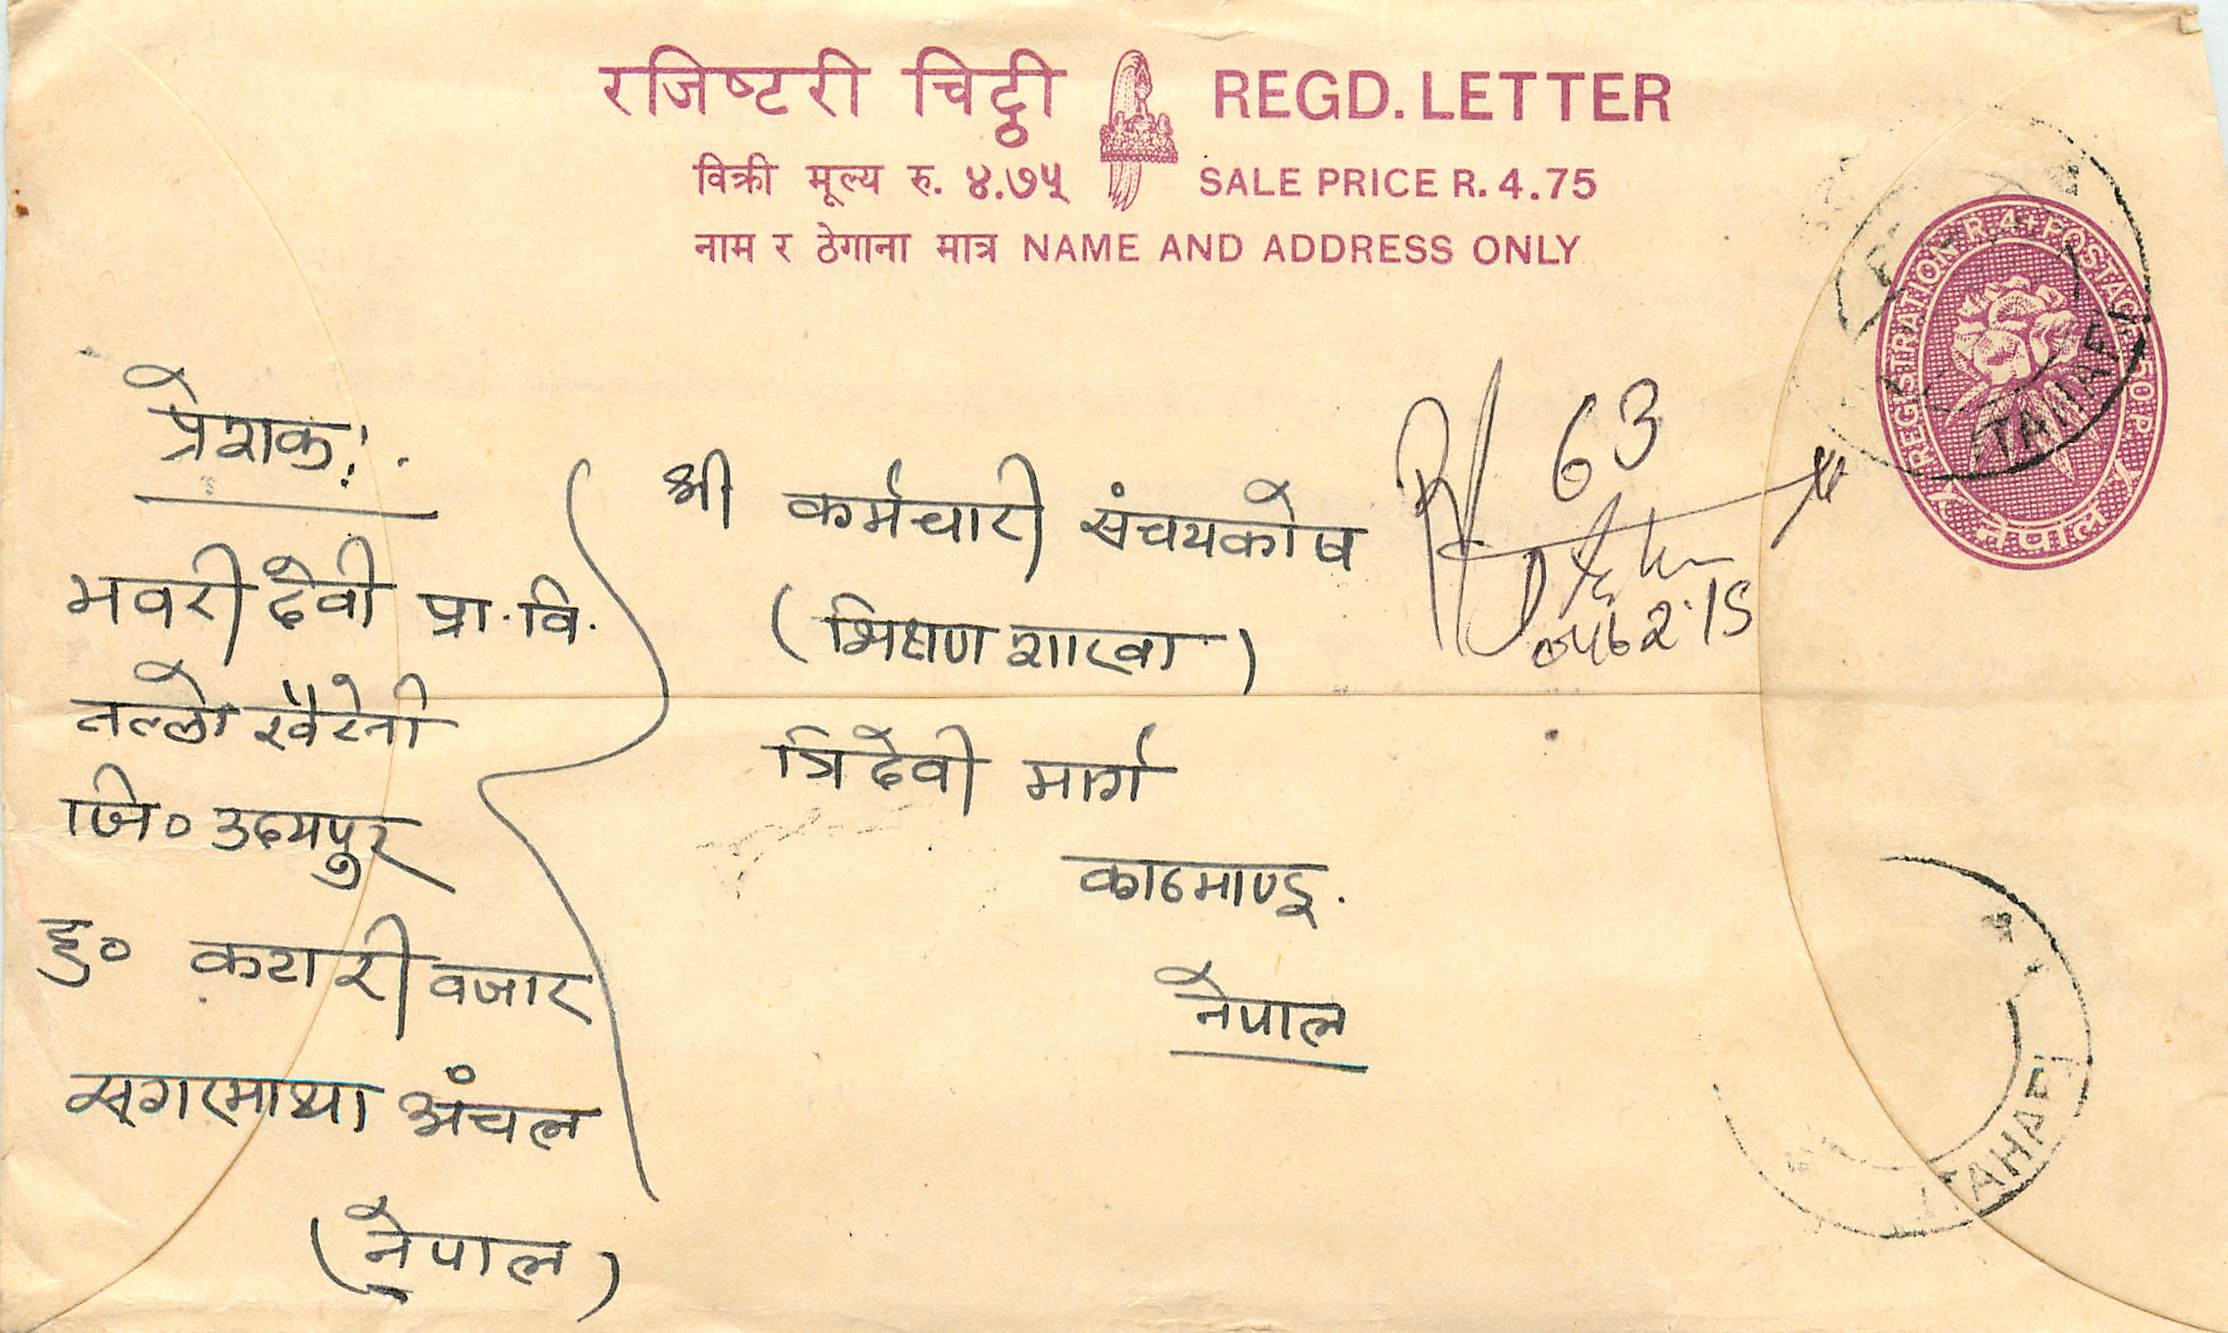 रजिष्टरी चिट्ठी REGD. LETTER
विक्री मूल्य रु. ४.७५ SALE PRICE R. 4.75
नाम र ठेगाना मात्र NAME AND ADDRESS ONLY
REGISTRATION R.4 + POSTAGE 50 P.
नेपाल
प्रेशक:
भवरी देवी प्रा.वि.
तल्लो खैरेनी
जि० उदयपुर
हु० कटारी वजार
सगरमाथा अंचल
(नेपाल)
श्री कर्मचारी संचयकोष
(भिक्षण शाखा)
त्रिदेवी मार्ग
काठमाण्डू.
नेपाल
63
ITAHARI